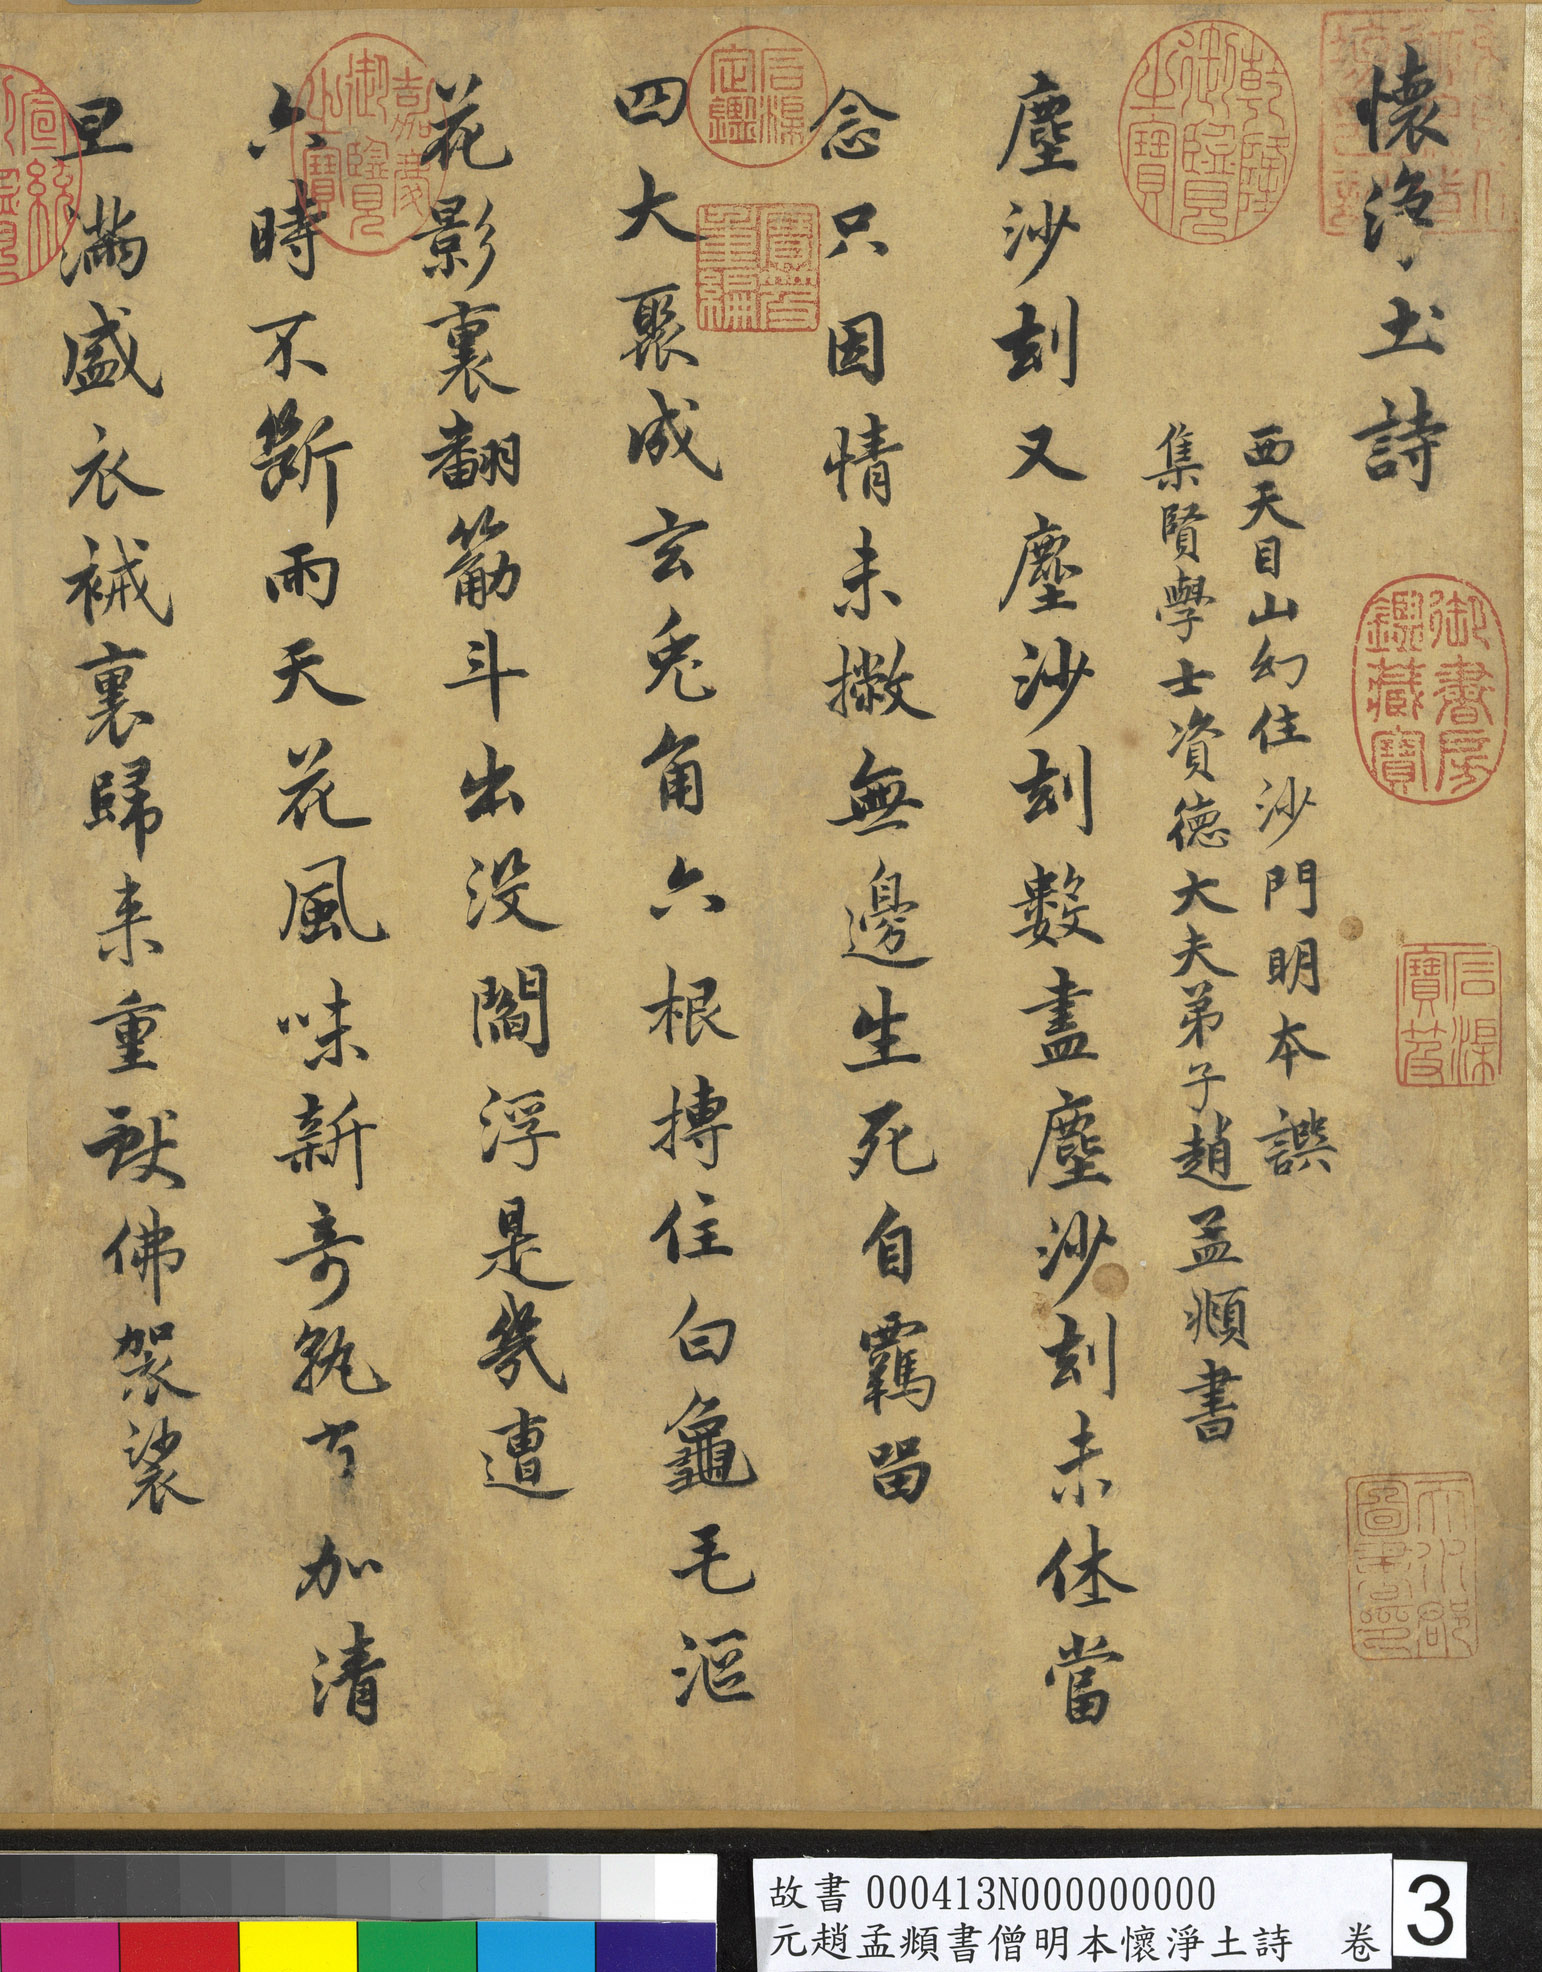 懷淨土詩
西天目山幻住沙門明本譔
集賢學士資德大夫弟子趙孟頫書
塵沙刻又塵沙刻數盡塵沙刻未休當
念只因情未撇無邊生死自羈留
四大聚成玄兔角六根搏住白龜毛漚
花影裏翻筋斗出沒閻浮是幾遭
六時不斷雨天花風味新奇孰可加清
旦滿盛衣裓裏歸来重獻佛袈裟
乾隆御覽之寶
石渠定鑑
寶笈重編
嘉慶御覽之寶
御書房鑑藏寶
石渠寶笈
故書 000413N000000000
元趙孟頫書僧明本懷淨土詩 卷
3